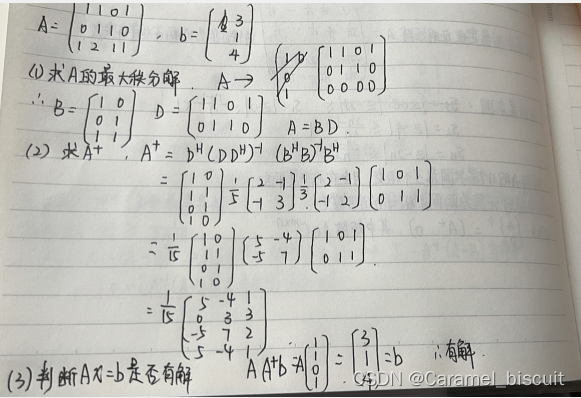 A = [1 1 0 1; 0 1 1 0; 1 2 1 1] , b = [3; 1; 4]
(1) 求A的最大秩分解. A → [1 1 0 1; 0 1 1 0; 0 0 0 0]
∴ B = [1 0; 0 1; 1 1] D = [1 1 0 1; 0 1 1 0] A = BD.
(2) 求A⁺ . A⁺ = Dᴴ(DDᴴ)⁻¹ (BᴴB)⁻¹Bᴴ
= [1 0; 1 1; 0 1; 1 0] 1/5 [2 -1; -1 3] 1/3 [2 -1; -1 2] [1 0 1; 0 1 1]
= 1/15 [1 0; 1 1; 0 1; 1 0] (5 -4; -5 7) [1 0 1; 0 1 1].
= 1/15 [5 -4 1; 0 3 3; -5 7 2; 5 -4 1]
(3) 判断Ax=b是否有解 AA⁺b = A[1; 1; 0; 1] = [3; 1; 4] = b ∴有解.
CSDN @Caramel_biscuit